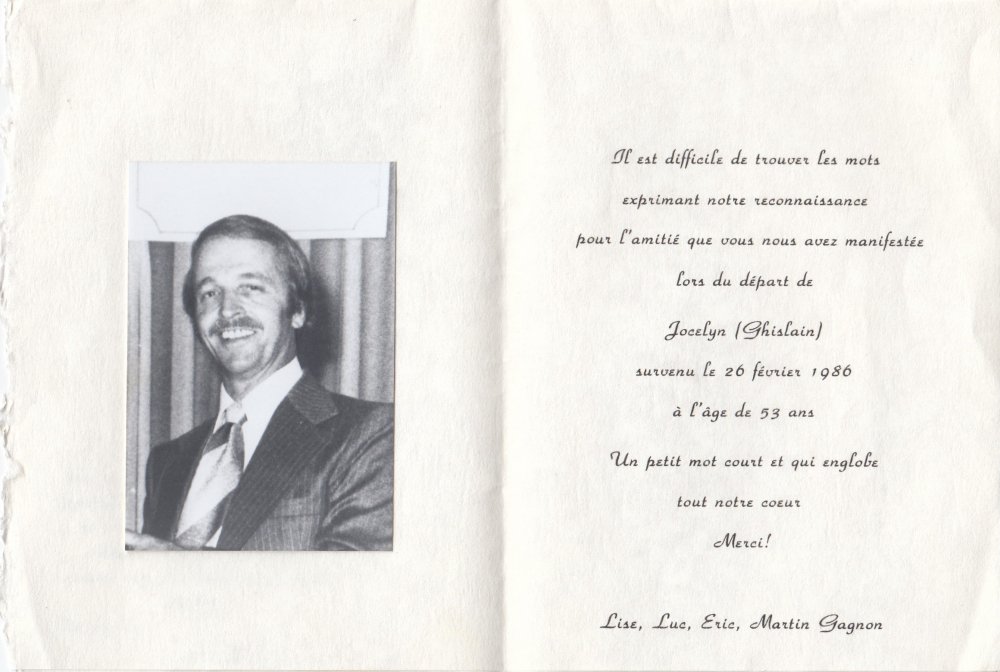 Il est difficile de trouver les mots
exprimant notre reconnaissance
pour l'amitié que vous nous avez manifestée
lors du départ de
Jocelyn (Ghislain)
survenu le 26 février 1986
à l'âge de 53 ans
Un petit mot court et qui englobe
tout notre coeur
Merci!
Lise, Luc, Eric, Martin Gagnon